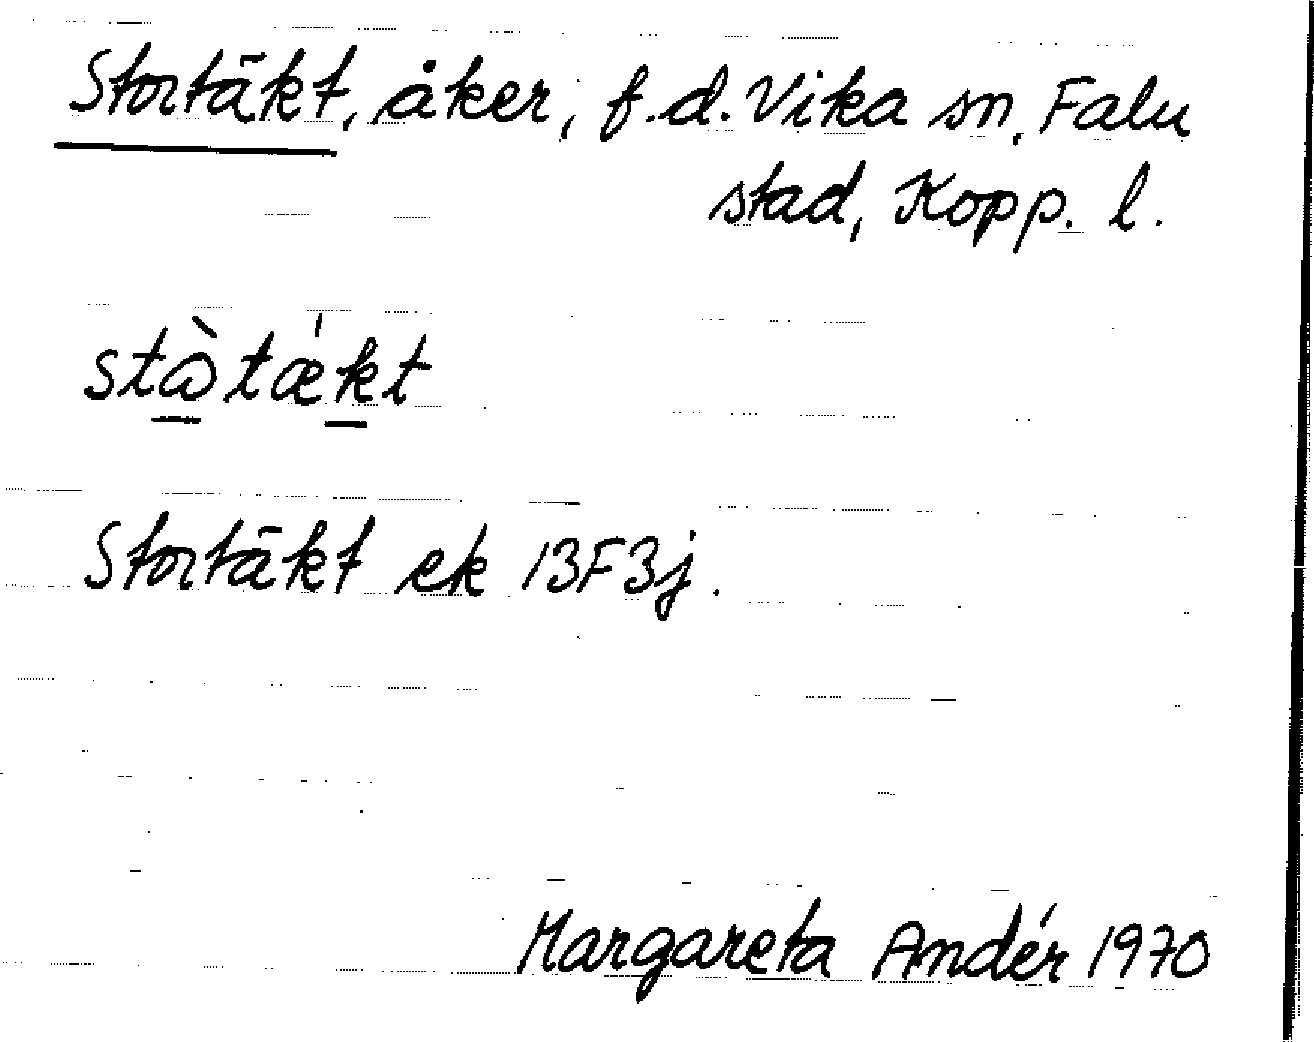 Stortäkt, åker, f.d. Vika sn, Falu
stad, Kopp. l.
Stortäkt ek 13F3j.
Margareta Andér 1970